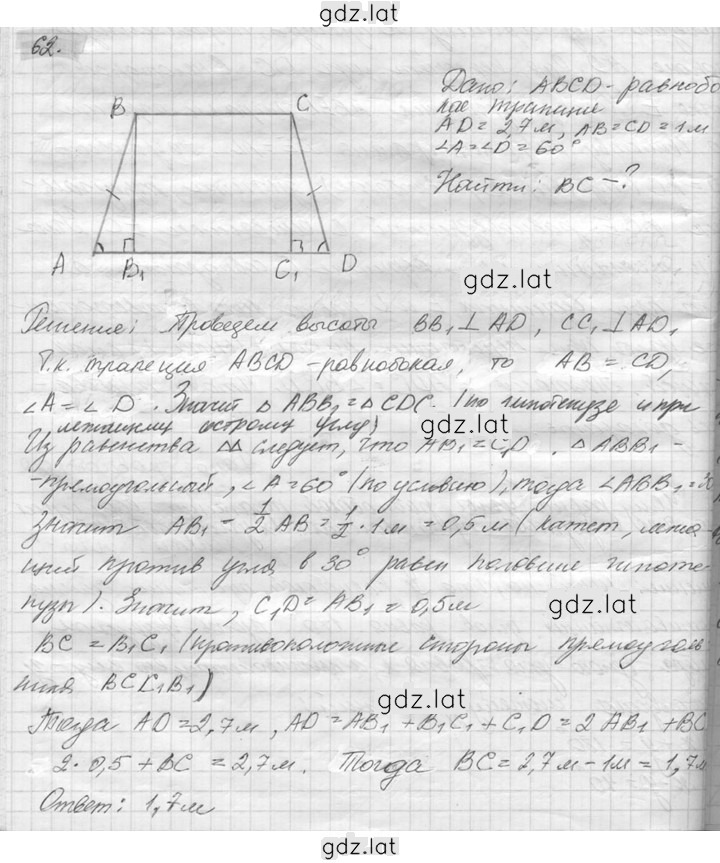 gdz.lat
62.
Дано: ABCD - равнобо
кое трапеция
AD = 2,7 м, AB = CD = 1 м
∠A = ∠D = 60°
Найти: BC - ?
B C
A B₁ C₁ D
gdz.lat
Решение: Проведем высоты BB₁ ⊥ AD, CC₁ ⊥ AD,
Т.к. трапеция ABCD - равнобокая, то AB = CD,
∠A = ∠D. Значит △ ABB₁ = △ CDC₁ (по гипотенузе и при
лежащему острому углу)
Из равенства △△ следует, что AB₁ = C₁D. △ ABB₁ -
- прямоугольный, ∠A = 60° (по условию), тогда ∠ABB₁ = 30
Значит AB₁ = 1/2 AB = 1/2 · 1 м = 0,5 м (катет, лежа-
щий против угла в 30° равен половине гипоте
нузы). Значит, C₁D = AB₁ = 0,5 м
gdz.lat
BC = B₁C₁ (противоположные стороны прямоуголь
ника BCC₁B₁)
gdz.lat
Тогда AD = 2,7 м, AD = AB₁ + B₁C₁ + C₁D = 2 AB₁ + BC
2 · 0,5 + BC = 2,7 м. Тогда BC = 2,7 м - 1 м = 1,7 м
Ответ: 1,7 м
gdz.lat